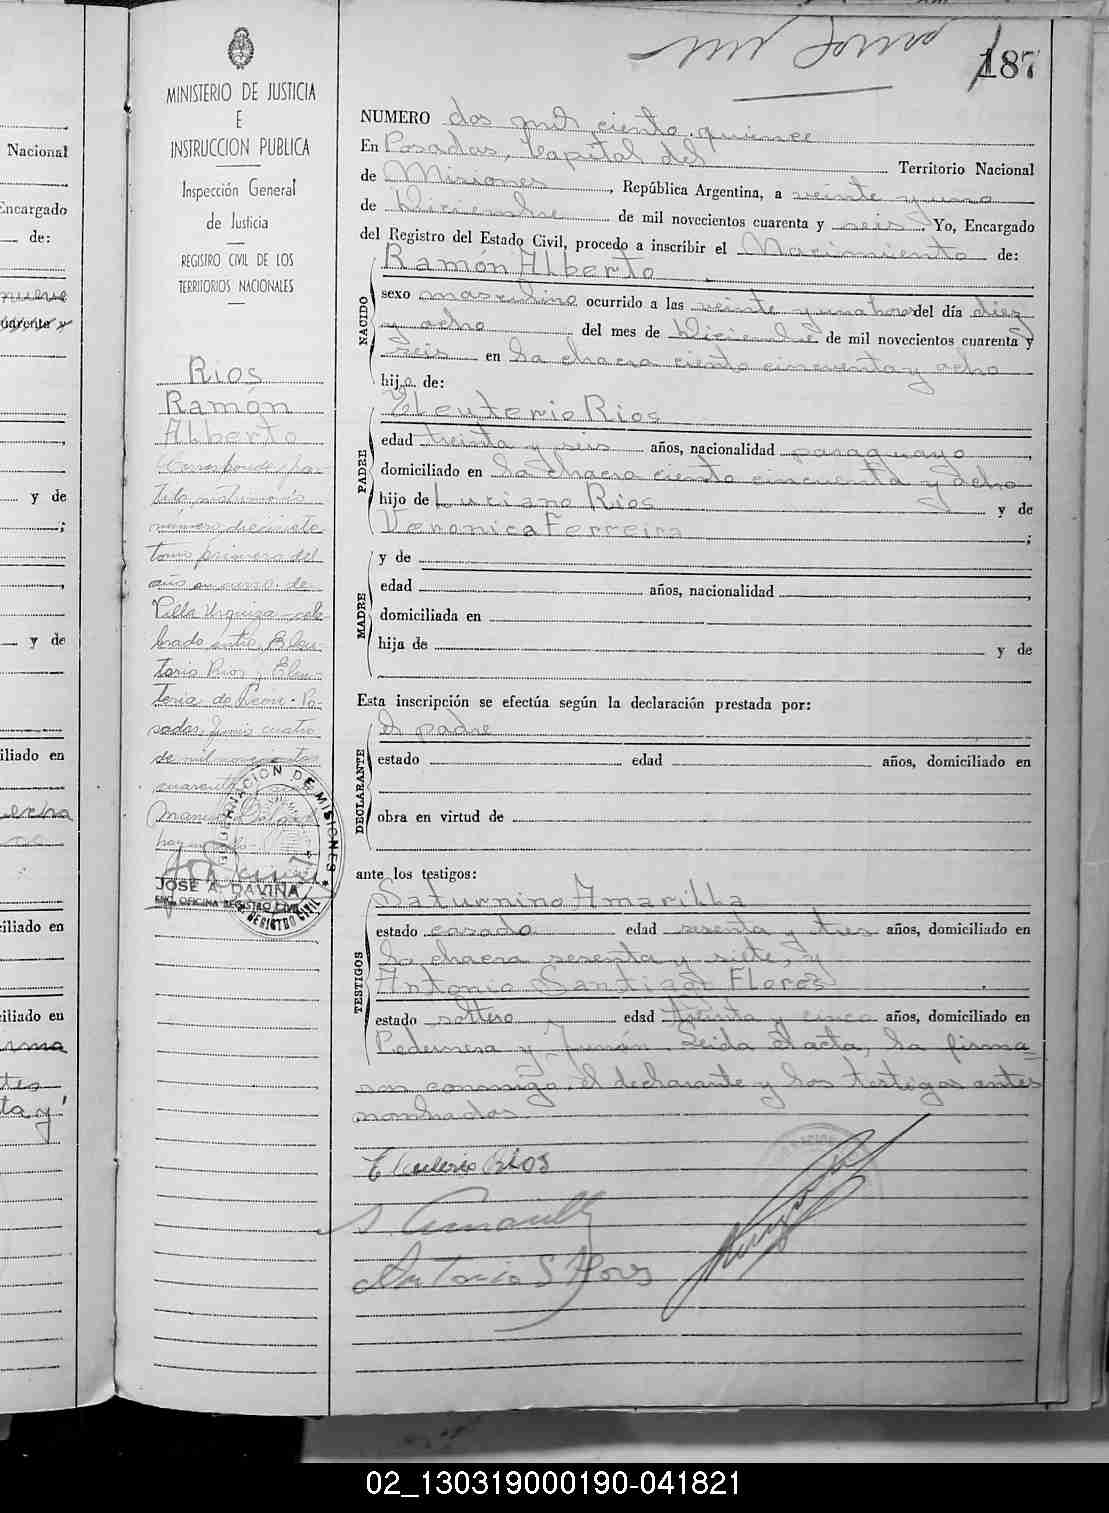 187
MINISTERIO DE JUSTICIA
E
INSTRUCCION PUBLICA
Inspección General
de Justicia
REGISTRO CIVIL DE LOS
TERRITORIOS NACIONALES
Rios
Ramón
Alberto
Corresponde
número diecisiete
tomo primero del
año en curso de
Villa Urquiza cele-
brado entre Eleu-
terio Rios y Eleu-
teria de León - Po-
sadas, cuatro
de mil novecientos
cuarenta
GOBERNACION DE MISIONES
REGISTRO CIVIL
JOSE A. DAVIÑA
ENC. OFICINA REGISTRO CIVIL
NUMERO dos mil ciento quince
En Posadas, Capital del Territorio Nacional
de Misiones, República Argentina, a veinte y uno
de Diciembre de mil novecientos cuarenta y seis. Yo, Encargado
del Registro del Estado Civil, procedo a inscribir el Nacimiento de:
NACIDO
Ramón Alberto
sexo masculino ocurrido a las veinte y una horas del día diez
y ocho del mes de Diciembre de mil novecientos cuarenta y
seis en la chacra ciento cincuenta y ocho
hijo de:
PADRE
Eleuterio Rios
edad treinta y seis años, nacionalidad paraguayo
domiciliado en la chacra ciento cincuenta y ocho
hijo de Luciano Rios y de
Veronica Ferreira ;
MADRE
y de
edad años, nacionalidad ,
domiciliada en
hija de y de
Esta inscripción se efectúa según la declaración prestada por:
DECLARANTE
el padre
estado edad años, domiciliado en
obra en virtud de
ante los testigos:
TESTIGOS
Saturnino Amarilla
estado casado edad sesenta y tres años, domiciliado en
la chacra sesenta y siete, y
Antonio Santiago Flores
estado soltero edad treinta y cinco años, domiciliado en
Pedernera y Junín. Leida el acta, la firma=
ron conmigo, el declarante y los testigos antes
nombrados.
Eleuterio Rios
S. Amarilla
Antonio S Flores
Nacional
Encargado
de:
nueve
cuarenta y
y de
;
y de
iliado en
iliado en
iliado en
02_130319000190-041821